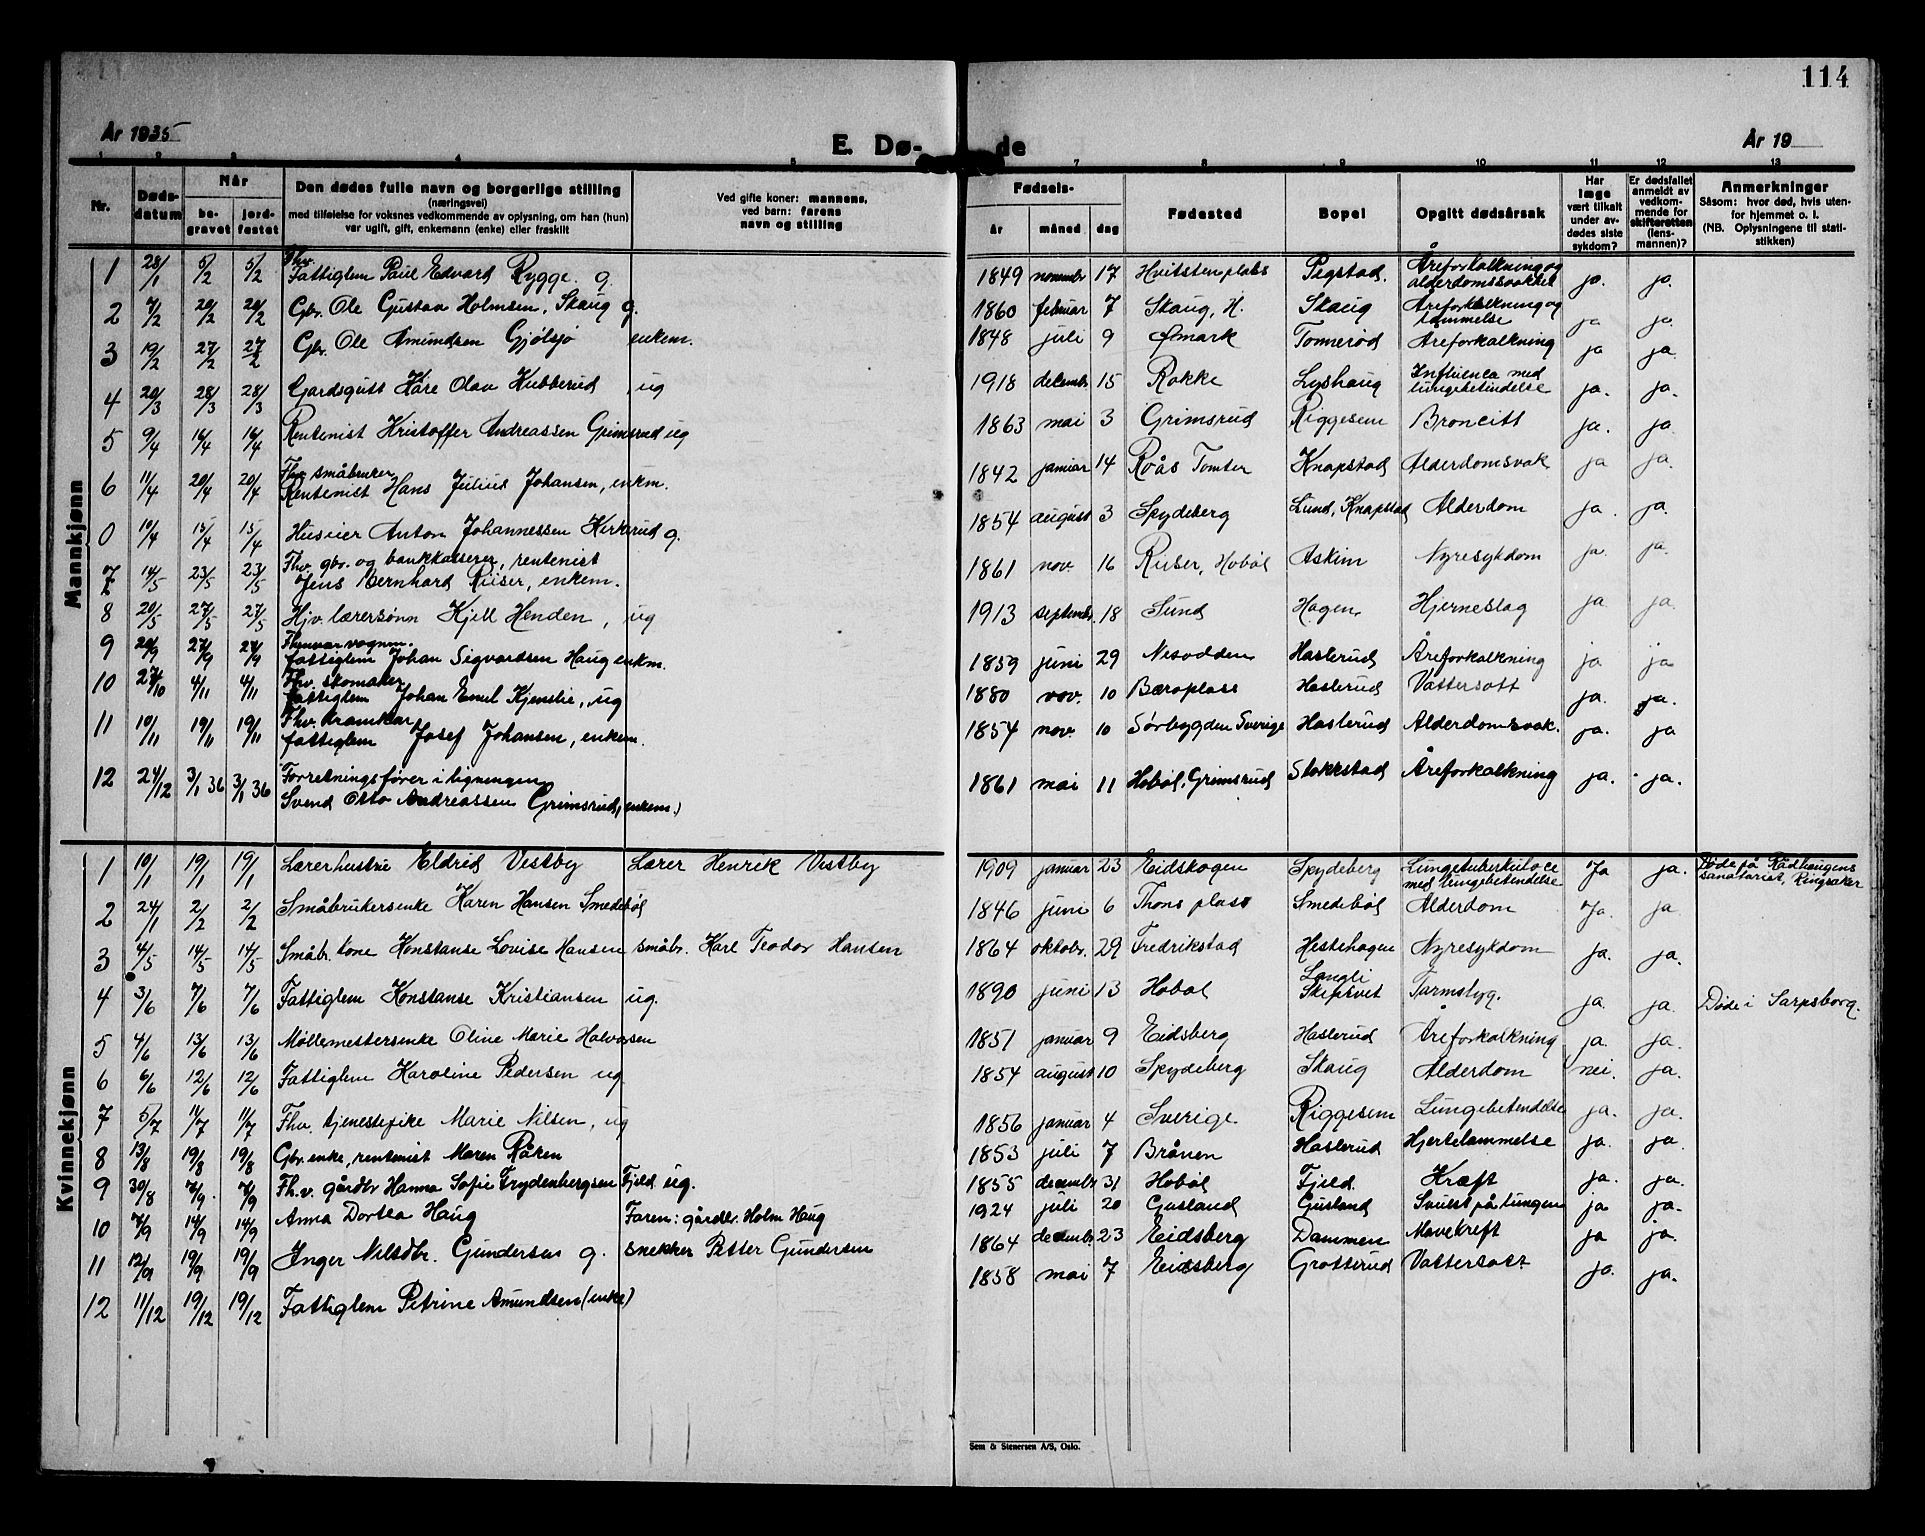 114
År 1935
E. Dø-
de
År 19
1 2 3 4 5 7 8 9 10 11 12 13
Nr.
Døds-
datum
Når
be-
gravet
jord-
festet
Den dødes fulle navn og borgerlige stilling
(næringsvei)
med tilføielse for voksnes vedkommende av oplysning, om han (hun)
var ugift, gift, enkemann (enke) eller fraskilt
Ved gifte koner: mannens,
ved barn: farens
navn og stilling
Fødsels-
år
måned
dag
Fødested
Bopel
Opgitt dødsårsak
Har
læge
vært tilkalt
under av-
dødes siste
sykdom?
Er dødsfallet
anmeldt av
vedkom-
mende for
skifteretten
(lens-
mannen)?
Anmerkninger
Såsom: hvor død, hvis uten-
for hjemmet o. l.
(NB. Oplysningene til stati-
stikken)
Mannkjønn
Fhv.
1 28/1 5/2 5/2 Fattiglem Paul Edvard Rygge. g. 1849 novembr 17 Hvitsten plads Pegstad. Åreforkalkning og
alderdomssvakhet ja. ja.
2 7/2 20/2 20/2 Gbr. Ole Gustav Holmsen, Skaug g. 1860 februar 7 Skaug, H. Skaug Åreforkalkning og
lammelse ja ja.
3 19/2 27/2 27/2 Gbr. Ole Amundsen Gjølsjø enkem. 1848 juli 9 Ømark Tonnerød Åreforkalkning ja ja.
4 20/3 28/3 28/3 Gardsgutt Kåre Olav Kubberud ug 1918 decembr 15 Rokke Lyshaug Influenca med
lungebetendelse ja. ja.
5 9/4 16/4 16/4 Rentenist Kristoffer Andreassen Grimsrud ug 1863 mai 3 Grimsrud Riggesem Broncitt ja. ja
Fhv. småbruker
6 11/4 20/4 20/4 Rentenist Hans Julius Johansen, enkm. 1842 januar 14 Roås Tomter Knapstad Alderdomsvak ja ja.
0 10/4 15/4 15/4 Huseier Anton Johannessen Kirkerud g. 1854 august 3 Spydeberg Lund, Knapstad Alderdom ja. ja.
Fhv. gbr. og bankkasserer, rentenist
7 14/5 23/5 23/5 Jens Bernhard Ruser, enkem. 1861 nov 16 Ruser, Hobøl Askim Nyresykdom ja. ja.
8 20/5 27/5 27/5 Hjv. lærersønn Kjell Henden, ug 1913 septembr. 18 Sund Hagen Hjerneslag ja ja.
9 20/9 27/9 27/9 fattiglem Johan Sigvardsen Haug enkm. 1859 juni 29 Nesodden Haslerud Åreforkalkning ja ja
Fhv. skomaker
10 27/10 4/11 4/11 fattiglem Johan Emil Kjenslie, ug 1880 nov. 10 Bæroplass Haslerud Vattersott ja. ja.
Fhv. kramkar
11 10/11 19/11 19/11 fattiglem Josef Johansen, enkem. 1854 nov. 10 Sørbygden Sverige Haslerud Alderdomssvak. ja. ja
Forretningsfører i ligningen
12 24/12 3/1 36 3/1 36 Svend Otto Andreassen Grimsrud, enkem.) 1861 mai 11 Hobøl, Grimsrud Stokkstad Åreforkalkning ja. ja.
Kvinnekjønn
1 10/1 19/1 19/1 Lærerhustrue Eldrid Vestby Lærer Henrik Vestby 1909 januar 23 Eidskogen Spydeberg Lungetuberkulose
med lungebetendelse Ja ja. Døde på Rådhaugens
sanatariet, Ringsaker
2 24/1 2/2 2/2 Småbrukersenke Karen Hansen Smedebøl 1846 juni 6 Thons plass Smedebøl Alderdom Ja. ja
3 4/5 14/5 14/5 Småbr. kone Konstanse Lovise Hansen småbr. Karl Teodor Hansen 1864 oktobr. 29 Fredrikstad Hestehagen Nyresykdom ja. ja.
4 3/6 7/6 7/6 Fattiglem Konstanse Kristiansen ug. 1890 juni 13 Hobøl Langli
Skiptvet Tarmslyg. ja. ja Døde i Sarpsborg.
5 4/6 13/6 13/6 Møllemestersenke Oline Marie Halvorsen 1851 januar 9 Eidsberg Haslerud Åreforkalkning ja. ja.
6 6/6 12/6 12/6 Fattiglem Karoline Pedersen ug 1854 august 10 Spydeberg Skaug Alderdom nei. ja.
7 5/7 11/7 11/7 Fhv. tjenestepike Marie Nilsen, ug 1856 januar 4 Sverige. Riggesem Lungebetendelse ja. ja.
8 13/8 19/8 19/8 Gbr. enke, rentenist Maren Råken 1853 juli 7 Brånen Haslerud Hjertelammelse ja. ja.
9 30/8 7/9. 7/9 Fh.v. gårdbr Hanna Sofie Frydenbergsen Fjeld ug. 1855 decembr 31 Hobøl Fjeld. Kræft ja. ja.
10 7/9 14/9 14/9 Anna Dortea Haug Faren: gårdbr. Holm Haug 1924 juli 20 Gusland Gusland Svulst på lungen ja ja.
11 12/9 19/9 19/9 Inger Nilsdtr. Gundersen g. snekker Petter Gundersen 1864 decembr. 23 Eidsberg Dammen Mavekreft ja ja.
12 11/12 19/12 19/12 Fattiglem Petrine Amundsen (enke) 1858 mai 7 Eidsberg Grotterud Vattersott ja. ja.
Sem & Stenersen A/S, Oslo.